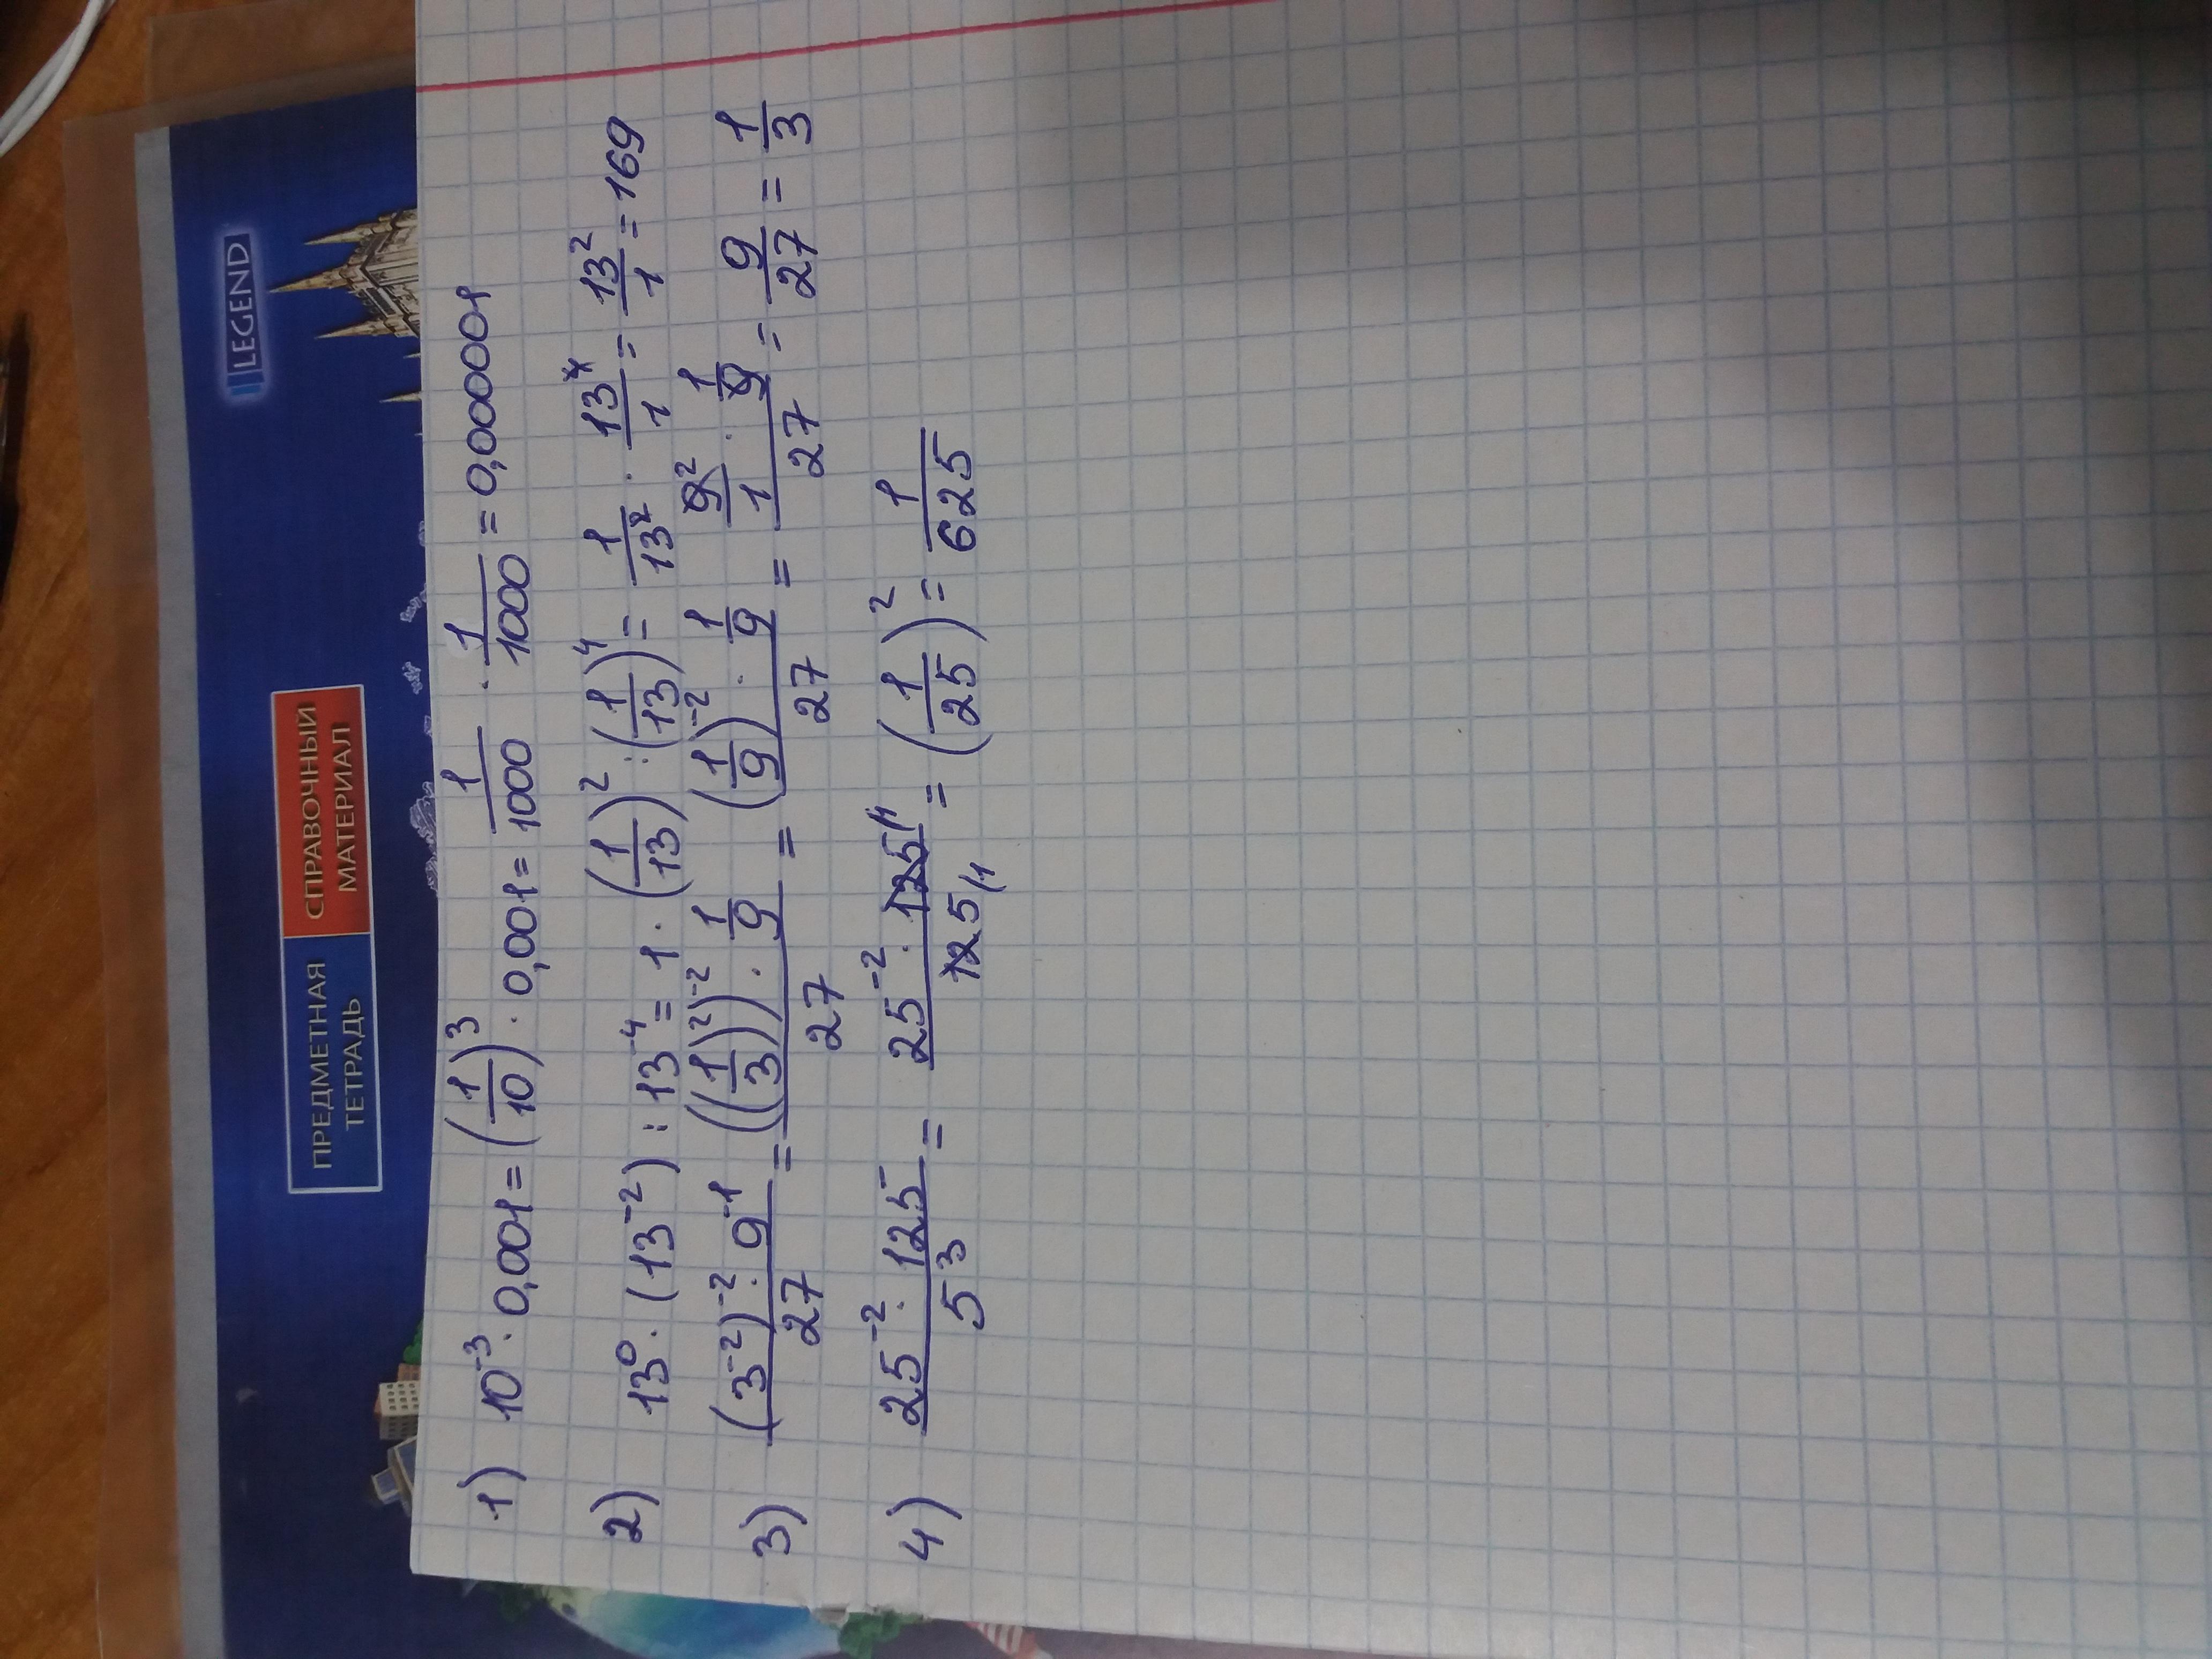 LEGEND
ПРЕДМЕТНАЯ ТЕТРАДЬ
СПРАВОЧНЫЙ МАТЕРИАЛ
1) 10⁻³ · 0,001 = (1/10)³ · 0,001 = 1/1000 · 1/1000 = 0,000001
2) 13⁰ · (13⁻²) : 13⁻⁴ = 1 · (1/13)² : (1/13)⁴ = 1/13² · 13⁴/1 = 13²/1 = 169
3) ((3⁻²)⁻² · 9⁻¹)/27 = (((1/3)²)⁻² · 1/9)/27 = ((1/9)⁻² · 1/9)/27 = (9²/1 · 1/9)/27 = 9/27 = 1/3
4) (25⁻² · 125)/5³ = (25⁻² · 125/1)/125/1 = (1/25)² = 1/625